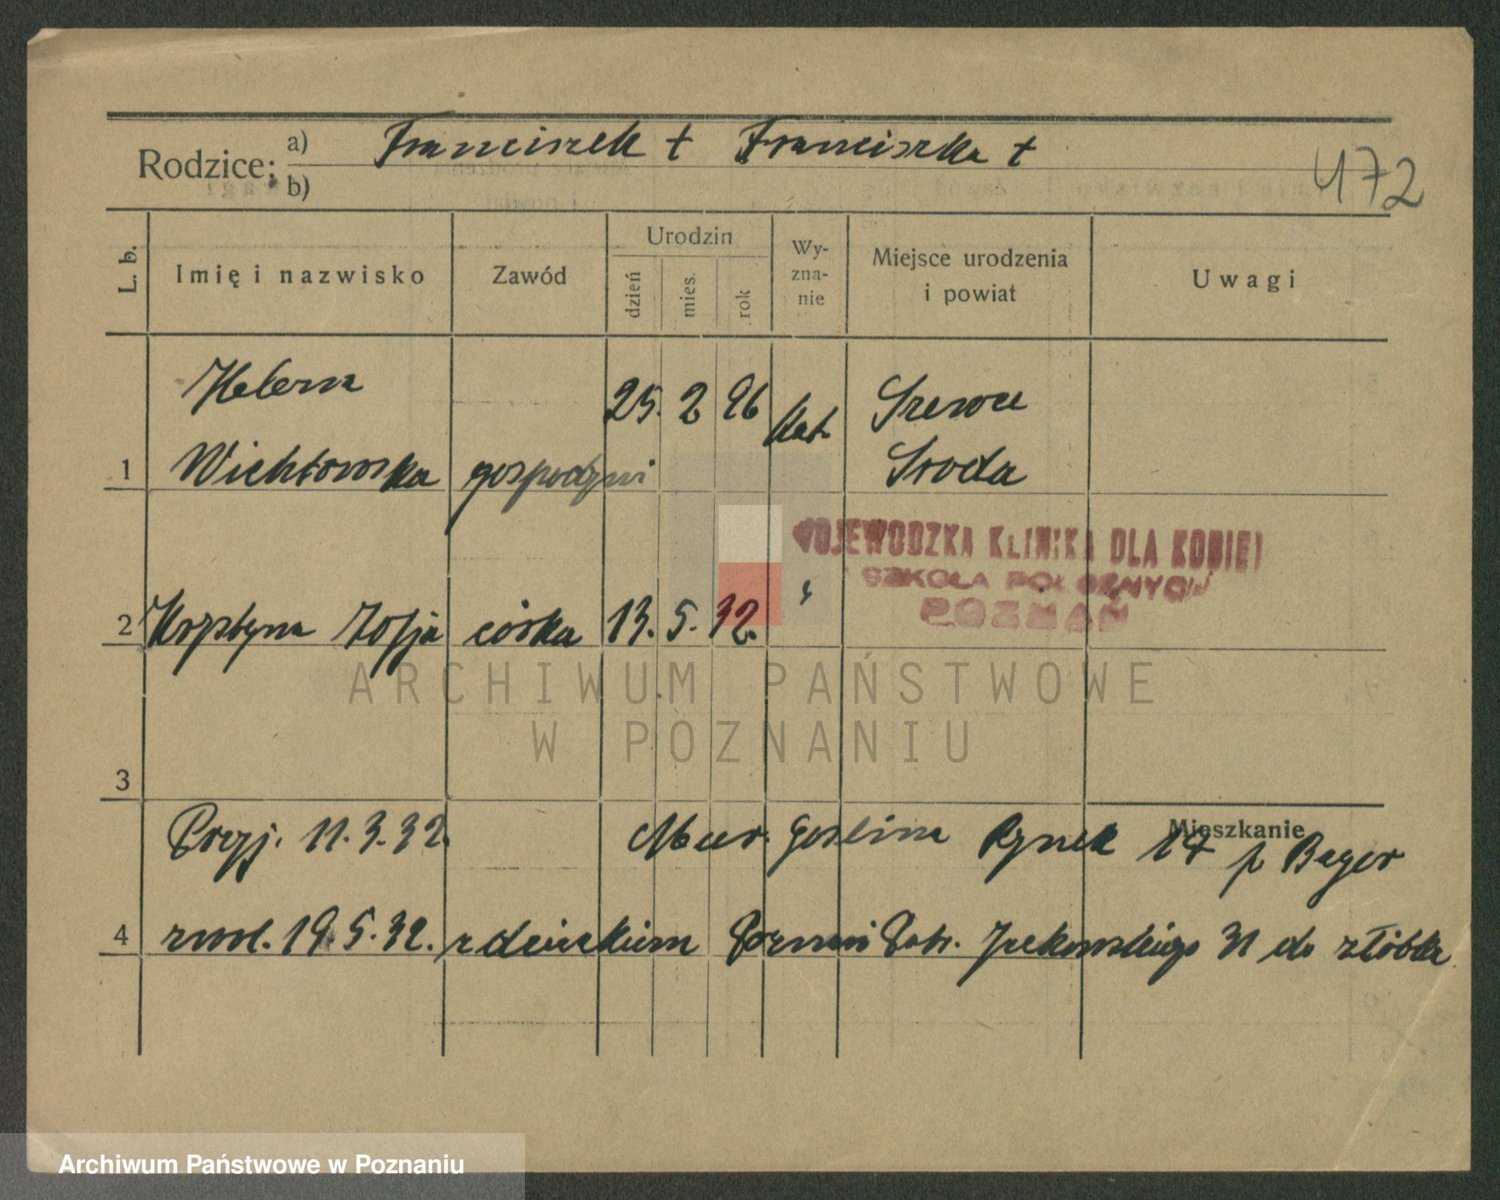 Rodzice: a) Franciszek † Franciszka †
b)
472
L. b.
Imię i nazwisko
Zawód
Urodzin
dzień
mies.
rok
Wy-
zna-
nie
Miejsce urodzenia
i powiat
Uwagi
Helena 25. 2 96 kat. Szewce
1 Wichłowska gospodyni Środa
WOJEWODZKA KLINIKA DLA KOBIET
SZKOŁA POŁOŻNYCH
POZNAŃ
2 Krystyna Zofja córka 13. 5. 32. "
ARCHIWUM PAŃSTWOWE
W POZNANIU
3
Mieszkanie
Przyj. 11.3.32. Mur. Goślina Rynek 14 p Bayer
4 zwol. 19.5.32. z dzieckiem Poznań Jackowskiego 31 do żłóbka
Archiwum Państwowe w Poznaniu